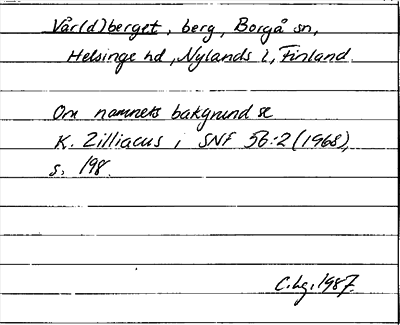 Vår(d)berget, berg, Borgå sn,
Helsinge hd, Nylands l, Finland.
Om namnets bakgrund se
K. Zilliacus i SNF 56:2 (1968),
s. 198.
C.hg.1987.